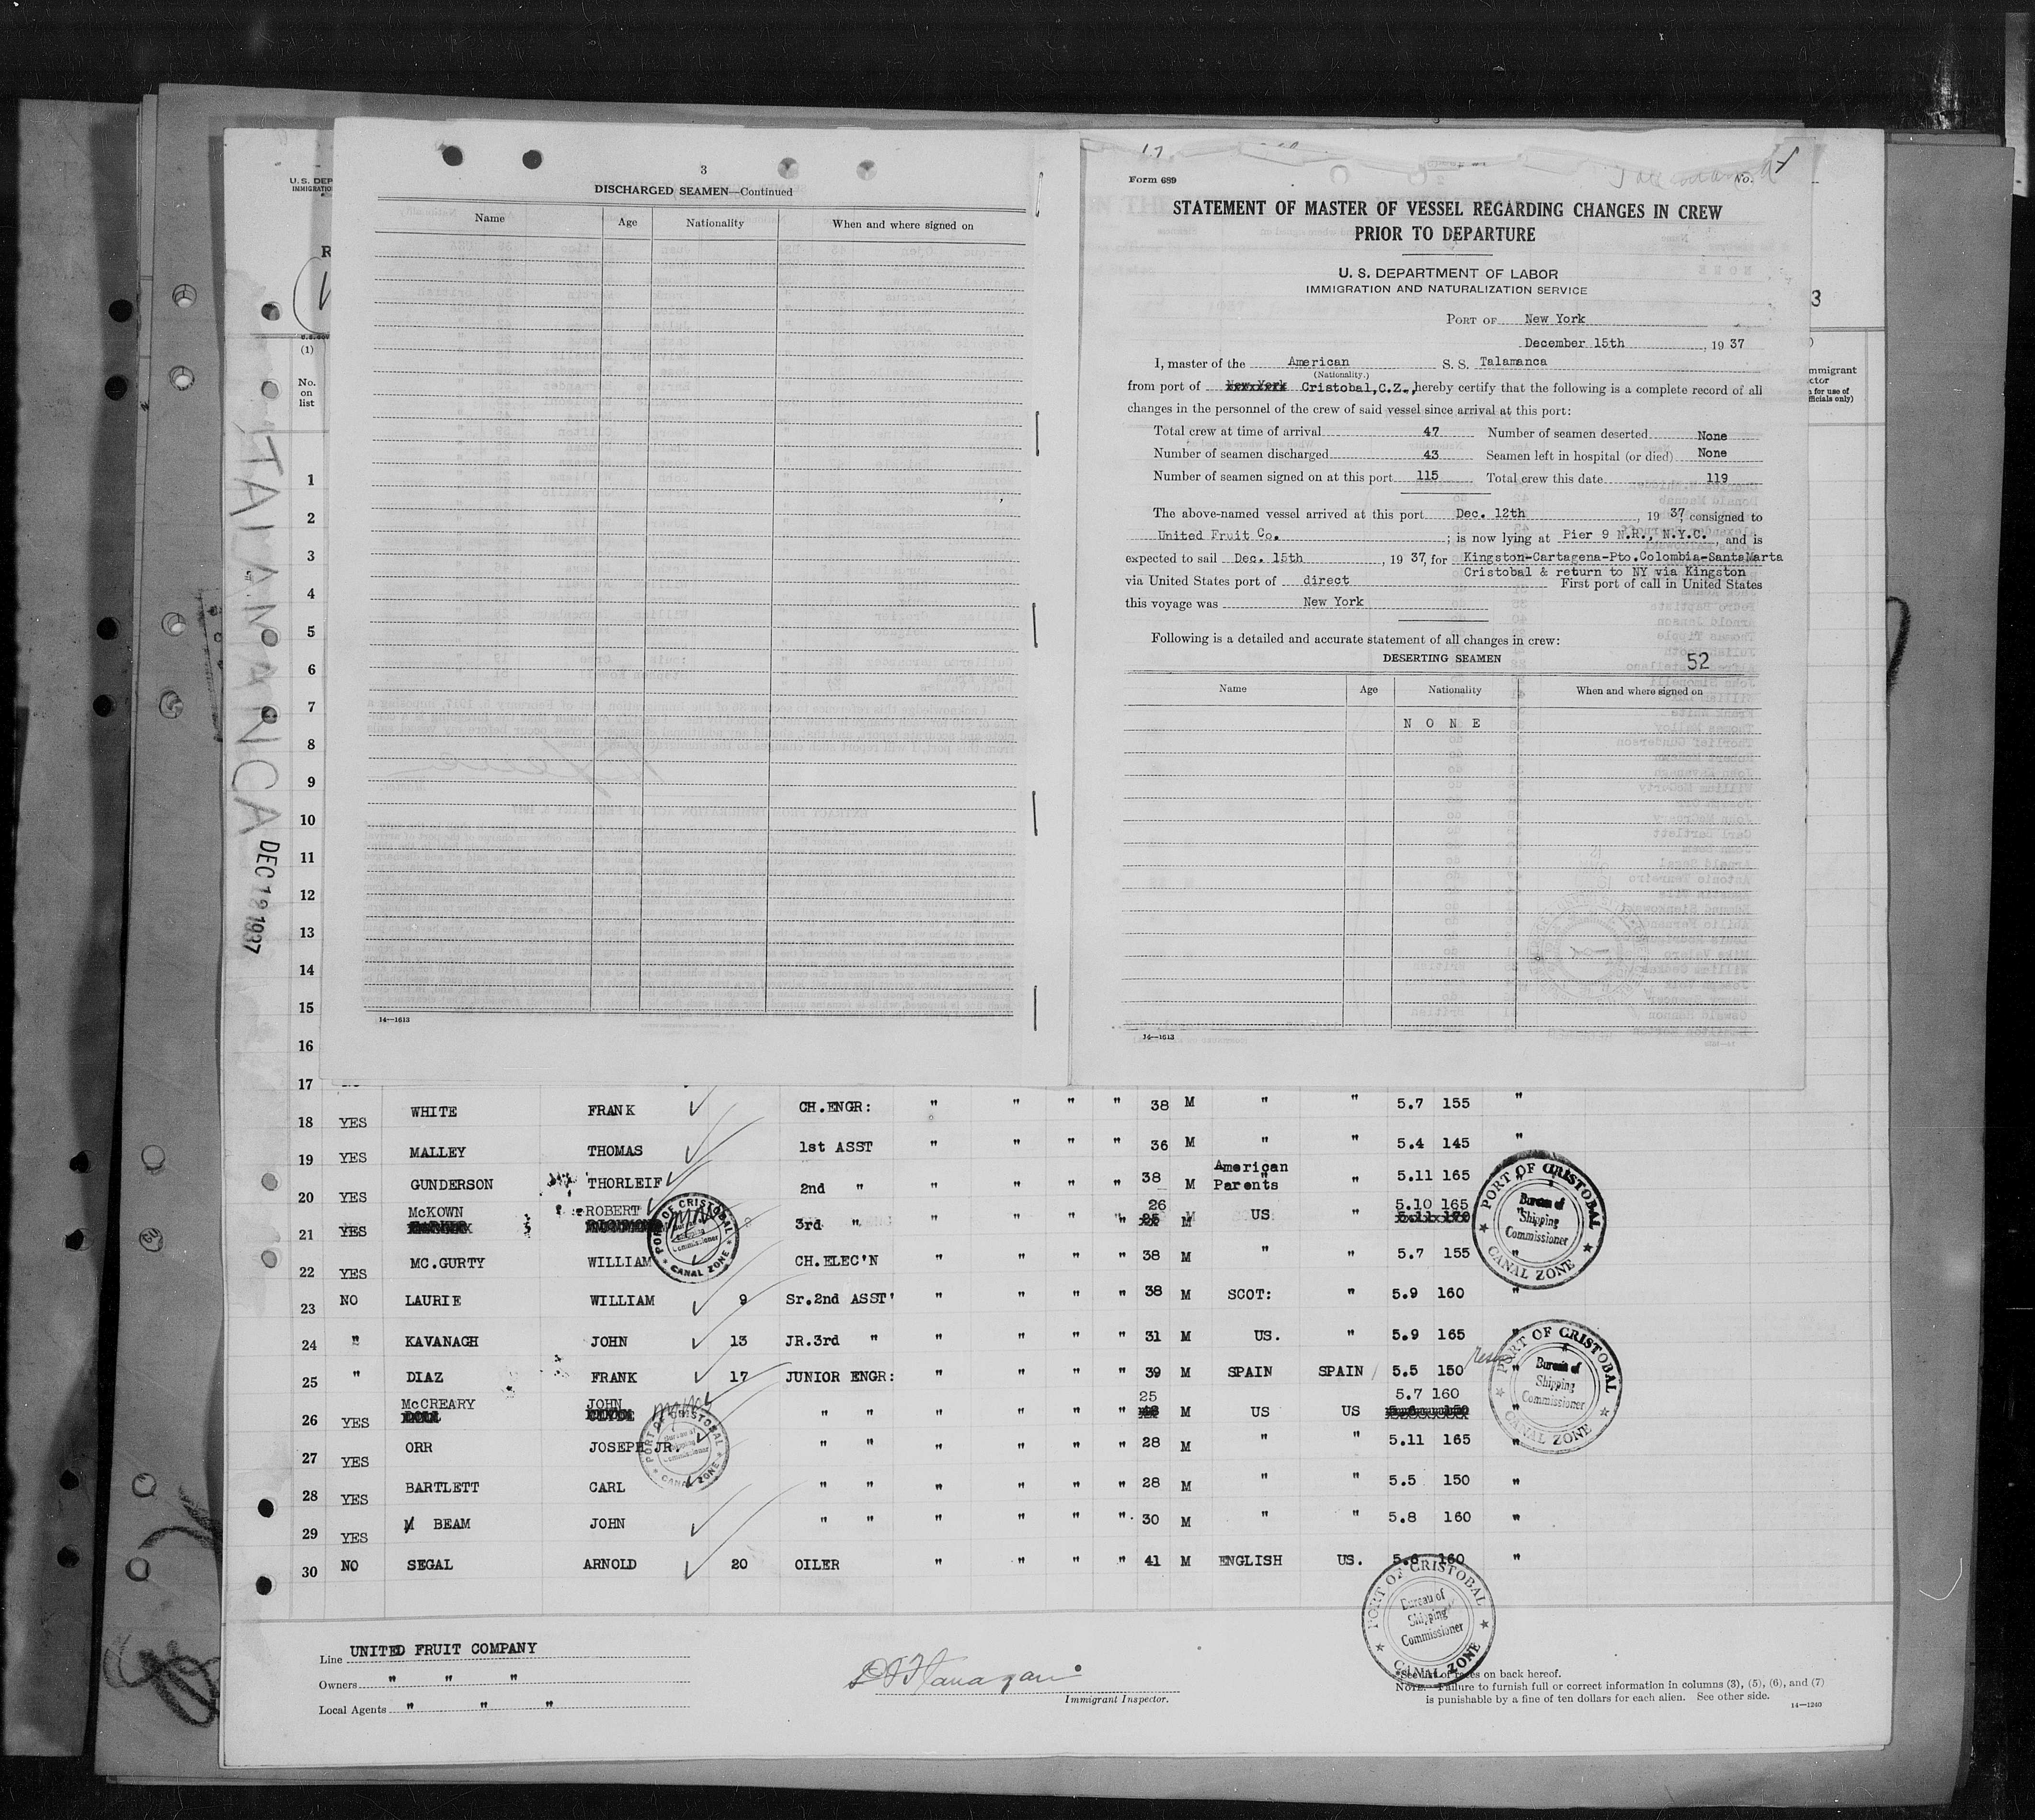 3
DISCHARGED SEAMEN—Continued
Name Age Nationality When and where signed on
14—1613
Form 689 No.
STATEMENT OF MASTER OF VESSEL REGARDING CHANGES IN CREW
PRIOR TO DEPARTURE
U. S. DEPARTMENT OF LABOR
IMMIGRATION AND NATURALIZATION SERVICE
PORT OF New York
December 15th, 1937
I, master of the American S. S. Talamanca
(Nationality.)
from port of New York Cristobal,C.Z., hereby certify that the following is a complete record of all
changes in the personnel of the crew of said vessel since arrival at this port:
Total crew at time of arrival 47 Number of seamen deserted None
Number of seamen discharged 43 Seamen left in hospital (or died) None
Number of seamen signed on at this port 115 Total crew this date 119
The above-named vessel arrived at this port Dec. 12th, 1937, consigned to
United Fruit Co. ; is now lying at Pier 9 N.R., N.Y.C., and is
expected to sail Dec. 15th, 1937, for Kingston-Cartagena-Pto.Colombia-SantaMarta
Cristobal & return to NY via Kingston
via United States port of direct First port of call in United States
this voyage was New York
Following is a detailed and accurate statement of all changes in crew:
DESERTING SEAMEN 52
Name Age Nationality When and where signed on
N O N E
14—1613
U. S. DEP
IMMIGRATION
R
3
(1)
No.
on
list
mmigrant
ctor
for use of
fficials only)
TALAMANCA DEC 12 1937
1
2
3
4
5
6
7
8
9
10
11
12
13
14
15
16
17
18 YES WHITE FRANK CH.ENGR: " " " " 38 M " " 5.7 155 "
19 YES MALLEY THOMAS 1st ASST " " " " 36 M " " 5.4 145 "
20 YES GUNDERSON THORLEIF 2nd " " " " " 38 M American Parents " 5.11 165 "
21 YES McKOWN ROBERT 3rd " " " " " 26 M US " 5.10 165
22 YES MC.GURTY WILLIAM CH.ELEC'N " " " " 38 M " " 5.7 155 "
23 NO LAURIE WILLIAM 9 Sr.2nd ASST' " " " " 38 M SCOT: " 5.9 160 "
24 " KAVANAGH JOHN 13 JR.3rd " " " " " 31 M US. " 5.9 165 "
25 " DIAZ FRANK 17 JUNIOR ENGR: " " " " 39 M SPAIN SPAIN 5.5 150 "
26 YES McCREARY JOHN " " " " " " 25 M US US 5.7 160 "
27 YES ORR JOSEPH JR. " " " " " " 28 M " " 5.11 165 "
28 YES BARTLETT CARL " " " " " " 28 M " " 5.5 150 "
29 YES BEAM JOHN " " " " " " 30 M " " 5.8 160 "
30 NO SEGAL ARNOLD 20 OILER " " " " 41 M ENGLISH US. 5.6 160 "
PORT OF CRISTOBAL
Bureau of
Shipping
Commissioner
CANAL ZONE
PORT OF CRISTOBAL
Bureau of
Shipping
Commissioner
CANAL ZONE
PORT OF CRISTOBAL
Bureau of
Shipping
Commissioner
CANAL ZONE
PORT OF CRISTOBAL
Bureau of
Shipping
Commissioner
CANAL ZONE
PORT OF CRISTOBAL
Bureau of
Shipping
Commissioner
CANAL ZONE
Line UNITED FRUIT COMPANY
Owners " " "
Local Agents " " "
Immigrant Inspector.
*See list of races on back hereof.
NOTE.—Failure to furnish full or correct information in columns (3), (5), (6), and (7)
is punishable by a fine of ten dollars for each alien. See other side.
14—1240